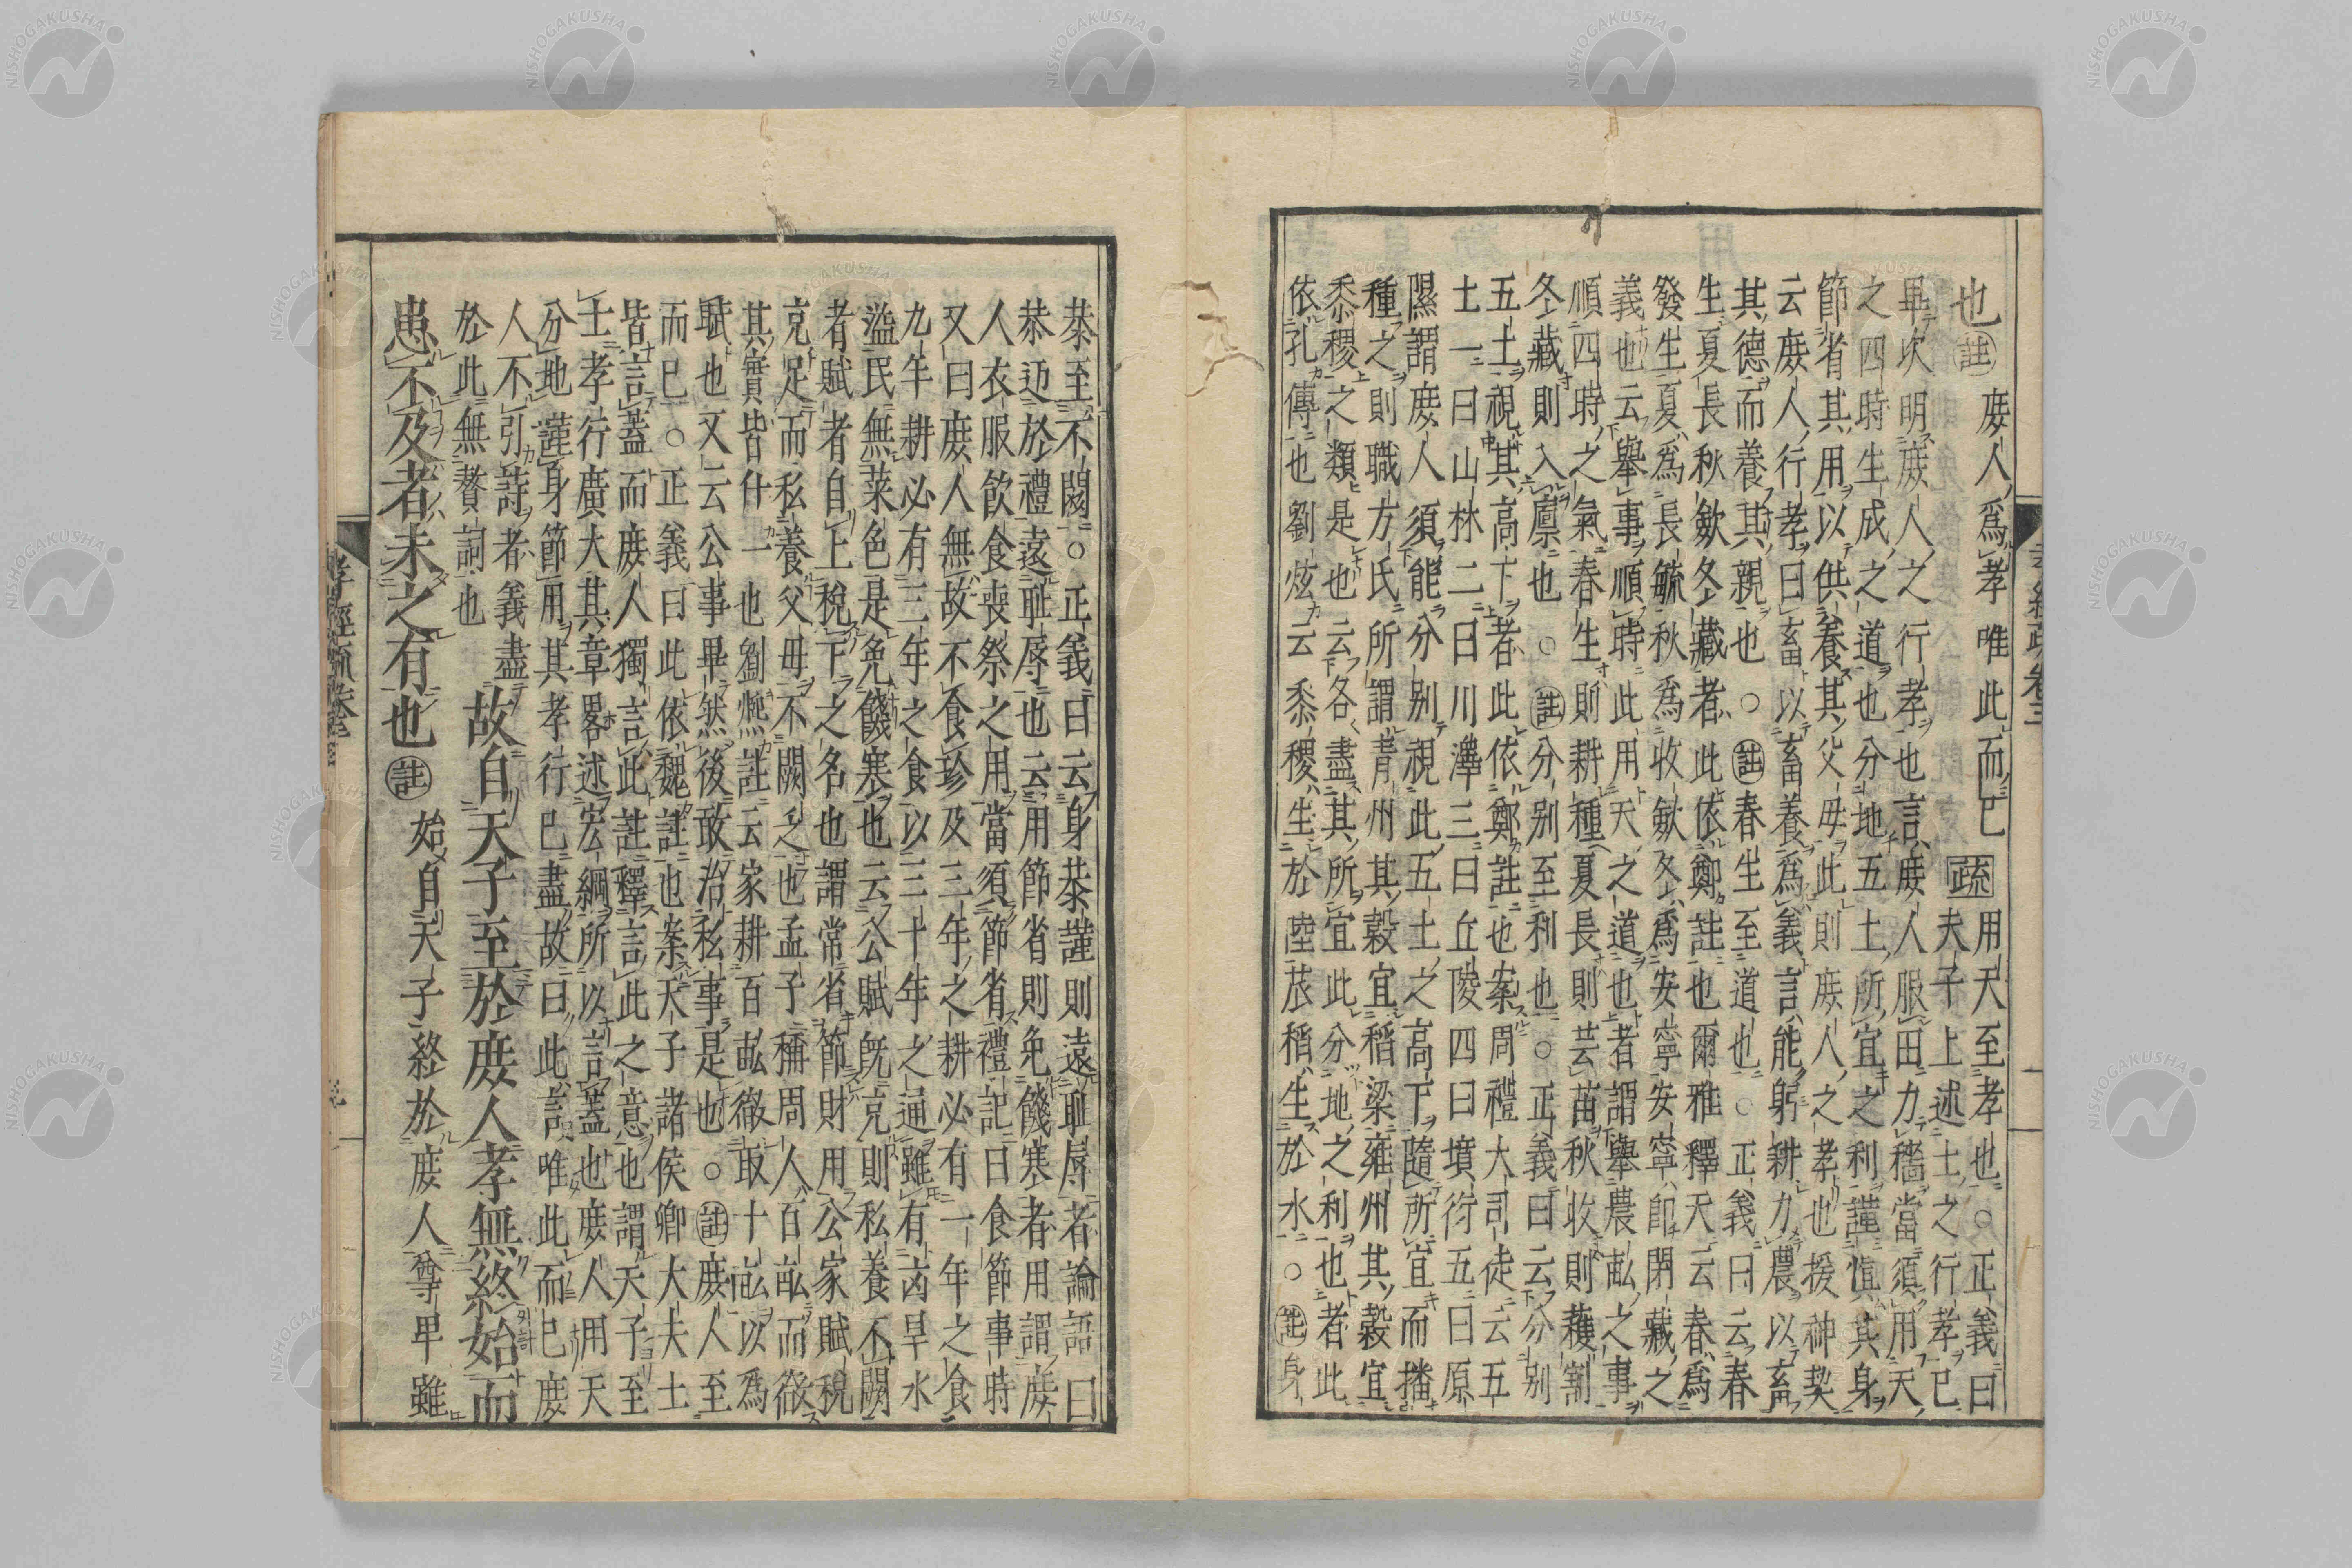 也 註 庶人爲孝唯此而已 疏 用天至孝也○正義曰
夫子上述士之行孝已
畢次明庶人之行孝也言庶人服田力穡當須用天
之四時生成之道也分地五土所宜之利謹愼其身
節省其用以供養其父毋此則庶人之孝也援神契
云庶人行孝曰畜以畜養爲義言能躬耕力農以畜
其德而養其親也○註春生至道也○正義曰云春
生夏長秋斂冬藏者此依鄭註也爾雅釋天云春爲
發生夏爲長毓秋爲收斂冬爲安寧安寧即閉藏之
義也云舉事順時此用天之道也者謂舉農畝之事
順四時之氣春生則耕種夏長則芸苗秋收則穫割
冬藏則入廩也○註分别至利也○正義曰云分别
五土視其高下者此依鄭註也案周禮大司徒云五
土一曰山林二曰川澤三曰丘陵四曰墳衍五曰原
隰謂庶人須能分别視此五土之高下隨所宜而播
種之則職方氏所謂青州其穀宜稻梁雍州其穀宜
黍稷之類是也云各盡其所宜此分地之利也者此
依孔傳也劉炫云黍稷生於陸苽稻生於水○註身
恭至不闕○正義曰云身恭謹則遠耻辱者論語曰
恭近於禮遠耻辱也云用節省則免饑寒者用謂庶
人衣服飮食喪祭之用當須節省禮記曰食節事時
又曰庶人無故不食珍及三年之耕必有一年之食
九年耕必有三年之食以三十年之通雖有凶旱水
溢民無菜色是免饑寒也云公賦旣充則私養不闕
者賦者自上稅下之名也謂常省節財用公家賦稅
充足而私養父毋不闕乏也孟子稱周人百畝而徹
其實皆什一也劉熈註云家耕百畝徹取十畝以爲
賦也又云公事畢然後敢治私事是也○註庶人至
而已○正義曰此依魏註也案天子諸侯卿大夫士
皆言蓋而庶人獨言此註釋言此之意也謂天子至
士孝行廣大其章畧述宏綱所以言蓋也庶人用天
分地謹身節用其孝行已盡故曰此言唯此而已庶
人不引詩者義盡
於此無贅詞也
故自天子至於庶人孝無終始而
患不及者未之有也 註 始自天子終於庶人尊卑雖